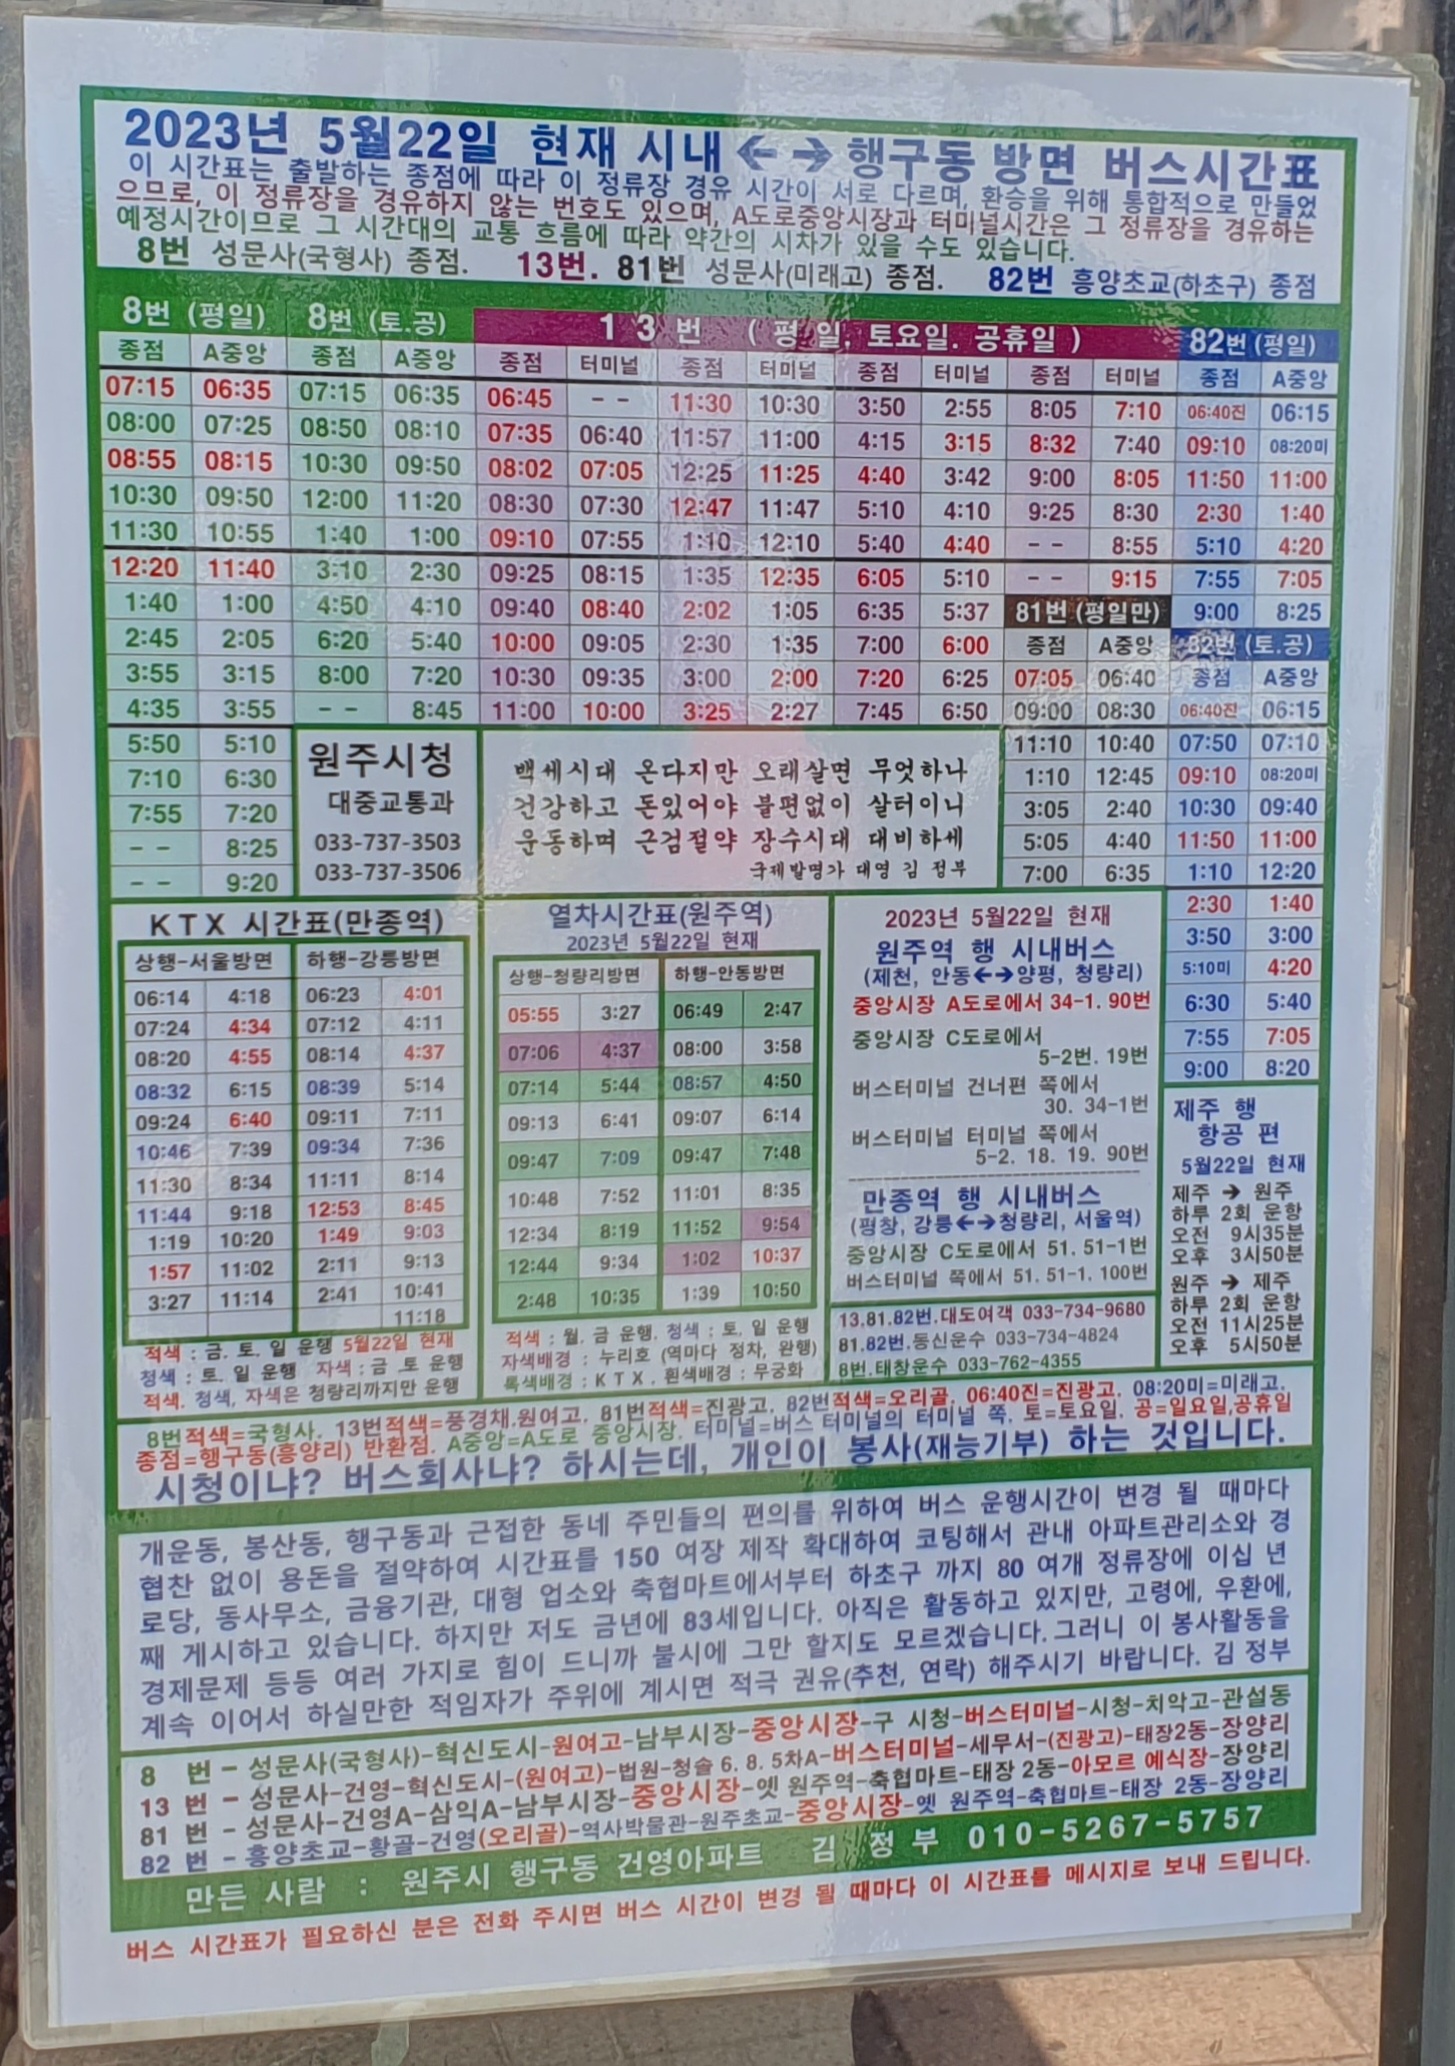 2023년 5월22일 현재 시내 ←→ 행구동 방면 버스시간표
이 시간표는 출발하는 종점에 따라 이 정류장 경유 시간이 서로 다르며, 환승을 위해 통합적으로 만들었
으므로, 이 정류장을 경유하지 않는 번호도 있으며, A도로중앙시장과 터미널시간은 그 정류장을 경유하는
예정시간이므로 그 시간대의 교통 흐름에 따라 약간의 시차가 있을 수도 있습니다.
8번 성문사(국형사) 종점. 13번. 81번 성문사(미래고) 종점. 82번 흥양초교(하초구) 종점
8번 (평일) 8번 (토.공) 13번 (평일. 토요일. 공휴일) 82번 (평일)
종점 A중앙 종점 A중앙 종점 터미널 종점 터미널 종점 터미널 종점 터미널 종점 A중앙
07:15 06:35 07:15 06:35 06:45 -- 11:30 10:30 3:50 2:55 8:05 7:10 06:40진 06:15
08:00 07:25 08:50 08:10 07:35 06:40 11:57 11:00 4:15 3:15 8:32 7:40 09:10 08:20미
08:55 08:15 10:30 09:50 08:02 07:05 12:25 11:25 4:40 3:42 9:00 8:05 11:50 11:00
10:30 09:50 12:00 11:20 08:30 07:30 12:47 11:47 5:10 4:10 9:25 8:30 2:30 1:40
11:30 10:55 1:40 1:00 09:10 07:55 1:10 12:10 5:40 4:40 -- 8:55 5:10 4:20
12:20 11:40 3:10 2:30 09:25 08:15 1:35 12:35 6:05 5:10 -- 9:15 7:55 7:05
1:40 1:00 4:50 4:10 09:40 08:40 2:02 1:05 6:35 5:37 81번 (평일만) 9:00 8:25
2:45 2:05 6:20 5:40 10:00 09:05 2:30 1:35 7:00 6:00 종점 A중앙 82번 (토.공)
3:55 3:15 8:00 7:20 10:30 09:35 3:00 2:00 7:20 6:25 07:05 06:40 종점 A중앙
4:35 3:55 -- 8:45 11:00 10:00 3:25 2:27 7:45 6:50 09:00 08:30 06:40진 06:15
5:50 5:10 11:10 10:40 07:50 07:10
7:10 6:30 1:10 12:45 09:10 08:20미
7:55 7:20 3:05 2:40 10:30 09:40
-- 8:25 5:05 4:40 11:50 11:00
-- 9:20 7:00 6:35 1:10 12:20
2:30 1:40
3:50 3:00
5:10미 4:20
6:30 5:40
7:55 7:05
9:00 8:20
원주시청
대중교통과
033-737-3503
033-737-3506
백세시대 온다지만 오래살면 무엇하나
건강하고 돈있어야 불편없이 살터이니
운동하며 근검절약 장수시대 대비하세
국제발명가 대영 김 정부
KTX 시간표(만종역)
상행-서울방면 하행-강릉방면
06:14 4:18 06:23 4:01
07:24 4:34 07:12 4:11
08:20 4:55 08:14 4:37
08:32 6:15 08:39 5:14
09:24 6:40 09:11 7:11
10:46 7:39 09:34 7:36
11:30 8:34 11:11 8:14
11:44 9:18 12:53 8:45
1:19 10:20 1:49 9:03
1:57 11:02 2:11 9:13
3:27 11:14 2:41 10:41
11:18
적색 : 금. 토. 일 운행 5월22일 현재
청색 : 토. 일 운행 자색 : 금 토 운행
적색. 청색, 자색은 청량리까지만 운행
열차시간표(원주역)
2023년 5월22일 현재
상행-청량리방면 하행-안동방면
05:55 3:27 06:49 2:47
07:06 4:37 08:00 3:58
07:14 5:44 08:57 4:50
09:13 6:41 09:07 6:14
09:47 7:09 09:47 7:48
10:48 7:52 11:01 8:35
12:34 8:19 11:52 9:54
12:44 9:34 1:02 10:37
2:48 10:35 1:39 10:50
적색 : 월. 금 운행. 청색 : 토. 일 운행
자색배경 : 누리호 (역마다 정차, 완행)
록색배경 : KTX . 흰색배경 : 무궁화
2023년 5월22일 현재
원주역 행 시내버스
(제천, 안동←→양평, 청량리)
중앙시장 A도로에서 34-1. 90번
중앙시장 C도로에서
5-2번. 19번
버스터미널 건너편 쪽에서
30. 34-1번
버스터미널 터미널 쪽에서
5-2. 18. 19. 90번
만종역 행 시내버스
(평창, 강릉←→청량리, 서울역)
중앙시장 C도로에서 51. 51-1번
버스터미널 쪽에서 51. 51-1. 100번
13.81.82번.대도여객 033-734-9680
81.82번.동신운수 033-734-4824
8번.태창운수 033-762-4355
제주 행
항공 편
5월22일 현재
제주 → 원주
하루 2회 운항
오전 9시35분
오후 3시50분
원주 → 제주
하루 2회 운항
오전 11시25분
오후 5시50분
8번적색=국형사. 13번적색=풍경채.원여고. 81번적색=진광고. 82번적색=오리골. 06:40진=진광고. 08:20미=미래고.
종점=행구동(흥양리) 반환점. A중앙=A도로 중앙시장. 터미널=버스 터미널의 터미널 쪽. 토=토요일. 공=일요일,공휴일
시청이냐? 버스회사냐? 하시는데, 개인이 봉사(재능기부) 하는 것입니다.
개운동, 봉산동, 행구동과 근접한 동네 주민들의 편의를 위하여 버스 운행시간이 변경 될 때마다
협찬 없이 용돈을 절약하여 시간표를 150 여장 제작 확대하여 코팅해서 관내 아파트관리소와 경
로당, 동사무소, 금융기관, 대형 업소와 축협마트에서부터 하초구 까지 80 여개 정류장에 이십 년
째 게시하고 있습니다. 하지만 저도 금년에 83세입니다. 아직은 활동하고 있지만, 고령에, 우환에,
경제문제 등등 여러 가지로 힘이 드니까 불시에 그만 할지도 모르겠습니다. 그러니 이 봉사활동을
계속 이어서 하실만한 적임자가 주위에 계시면 적극 권유(추천, 연락) 해주시기 바랍니다. 김 정부
8 번 - 성문사(국형사)-혁신도시-원여고-남부시장-중앙시장-구 시청-버스터미널-시청-치악고-관설동
13 번 - 성문사-건영-혁신도시-(원여고)-법원-청솔 6. 8. 5차A-버스터미널-세무서-(진광고)-태장2동-장양리
81 번 - 성문사-건영A-삼익A-남부시장-중앙시장-옛 원주역-축협마트-태장 2동-아모르 예식장-장양리
82 번 - 흥양초교-황골-건영(오리골)-역사박물관-원주초교-중앙시장-옛 원주역-축협마트-태장 2동-장양리
만든 사람 : 원주시 행구동 건영아파트 김 정 부 010-5267-5757
버스 시간표가 필요하신 분은 전화 주시면 버스 시간이 변경 될 때마다 이 시간표를 메시지로 보내 드립니다.